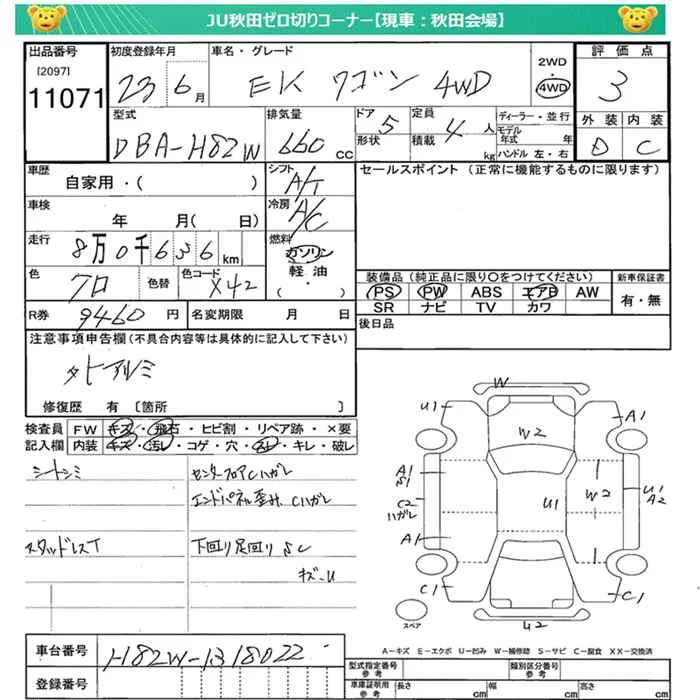 JU秋田ゼロ切りコーナー【現車：秋田会場】
出品番号
[2097]
11071
初度登録年月
23 6月
車名・グレード
EK ワゴン 4WD
2WD
・
4WD
評価点
3
外装 内装
D C
型式
DBA-H82W
排気量
660 cc
ドア 5
形状
定員 4 人
積載 kg
ディーラー・並行
モデル年式 年
ハンドル 左・右
車歴
自家用・( )
シフト
A/T
セールスポイント (正常に機能するものに限ります)
車検
年 月( 日)
冷房
A/C
走行
8万0千636km
燃料
ガソリン
軽油
・( )
色
クロ
色替
色コード
X42
装備品 (純正品に限り○をつけてください)
PS PW ABS エアB AW
SR ナビ TV カワ
新車保証書
有・無
R券
9460 円
名変期限 月 日
後日品
注意事項申告欄(不具合内容等は具体的に記入して下さい)
タトアルミ
修復歴 有 [箇所 ]
検査員
記入欄
FW キズ・飛石・ヒビ割・リペア跡・×要
内装 キズ・汚レ・コゲ・穴・スレ・キレ・破レ
シートシミ
センターフロアCハガレ
エンドパネル歪ミ Cハガレ
スタッドレスT
下回り足回り SC
キズ-U
W
U1
A1
W2
A1
S1
C2
ハガレ
U1
W2
U1
A2
A1
C1
C1
U2
スペア
A－キズ E－エクボ U－凹み W－補修跡 S－サビ C－腐食 XX－交換済
車台番号
H82W-1318022
登録番号
型式指定番号
参考
類別区分番号
参考
車庫証明用
参考
長さ cm
幅 cm
高さ cm